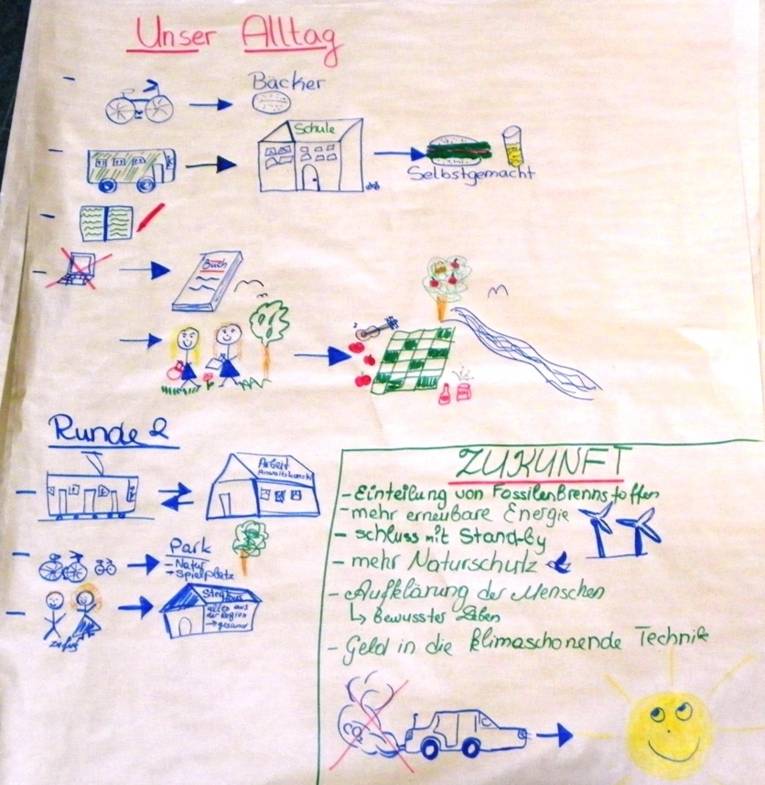 Unser Alltag
Bäcker
Schule
Selbstgemacht
Buch
Runde 2
Arbeit
Park
- Natur
→ Spielplatz
alles aus
der Region
→ gesund
ZUKUNFT
- Einteilung von Fossilen Brennstoffen
- mehr erneubare Energie
- schluss mit Stand-by
- mehr Naturschutz
- Aufklärung der Menschen
↳ Bewusster Leben
- Geld in die klimaschonende Technik
CO2